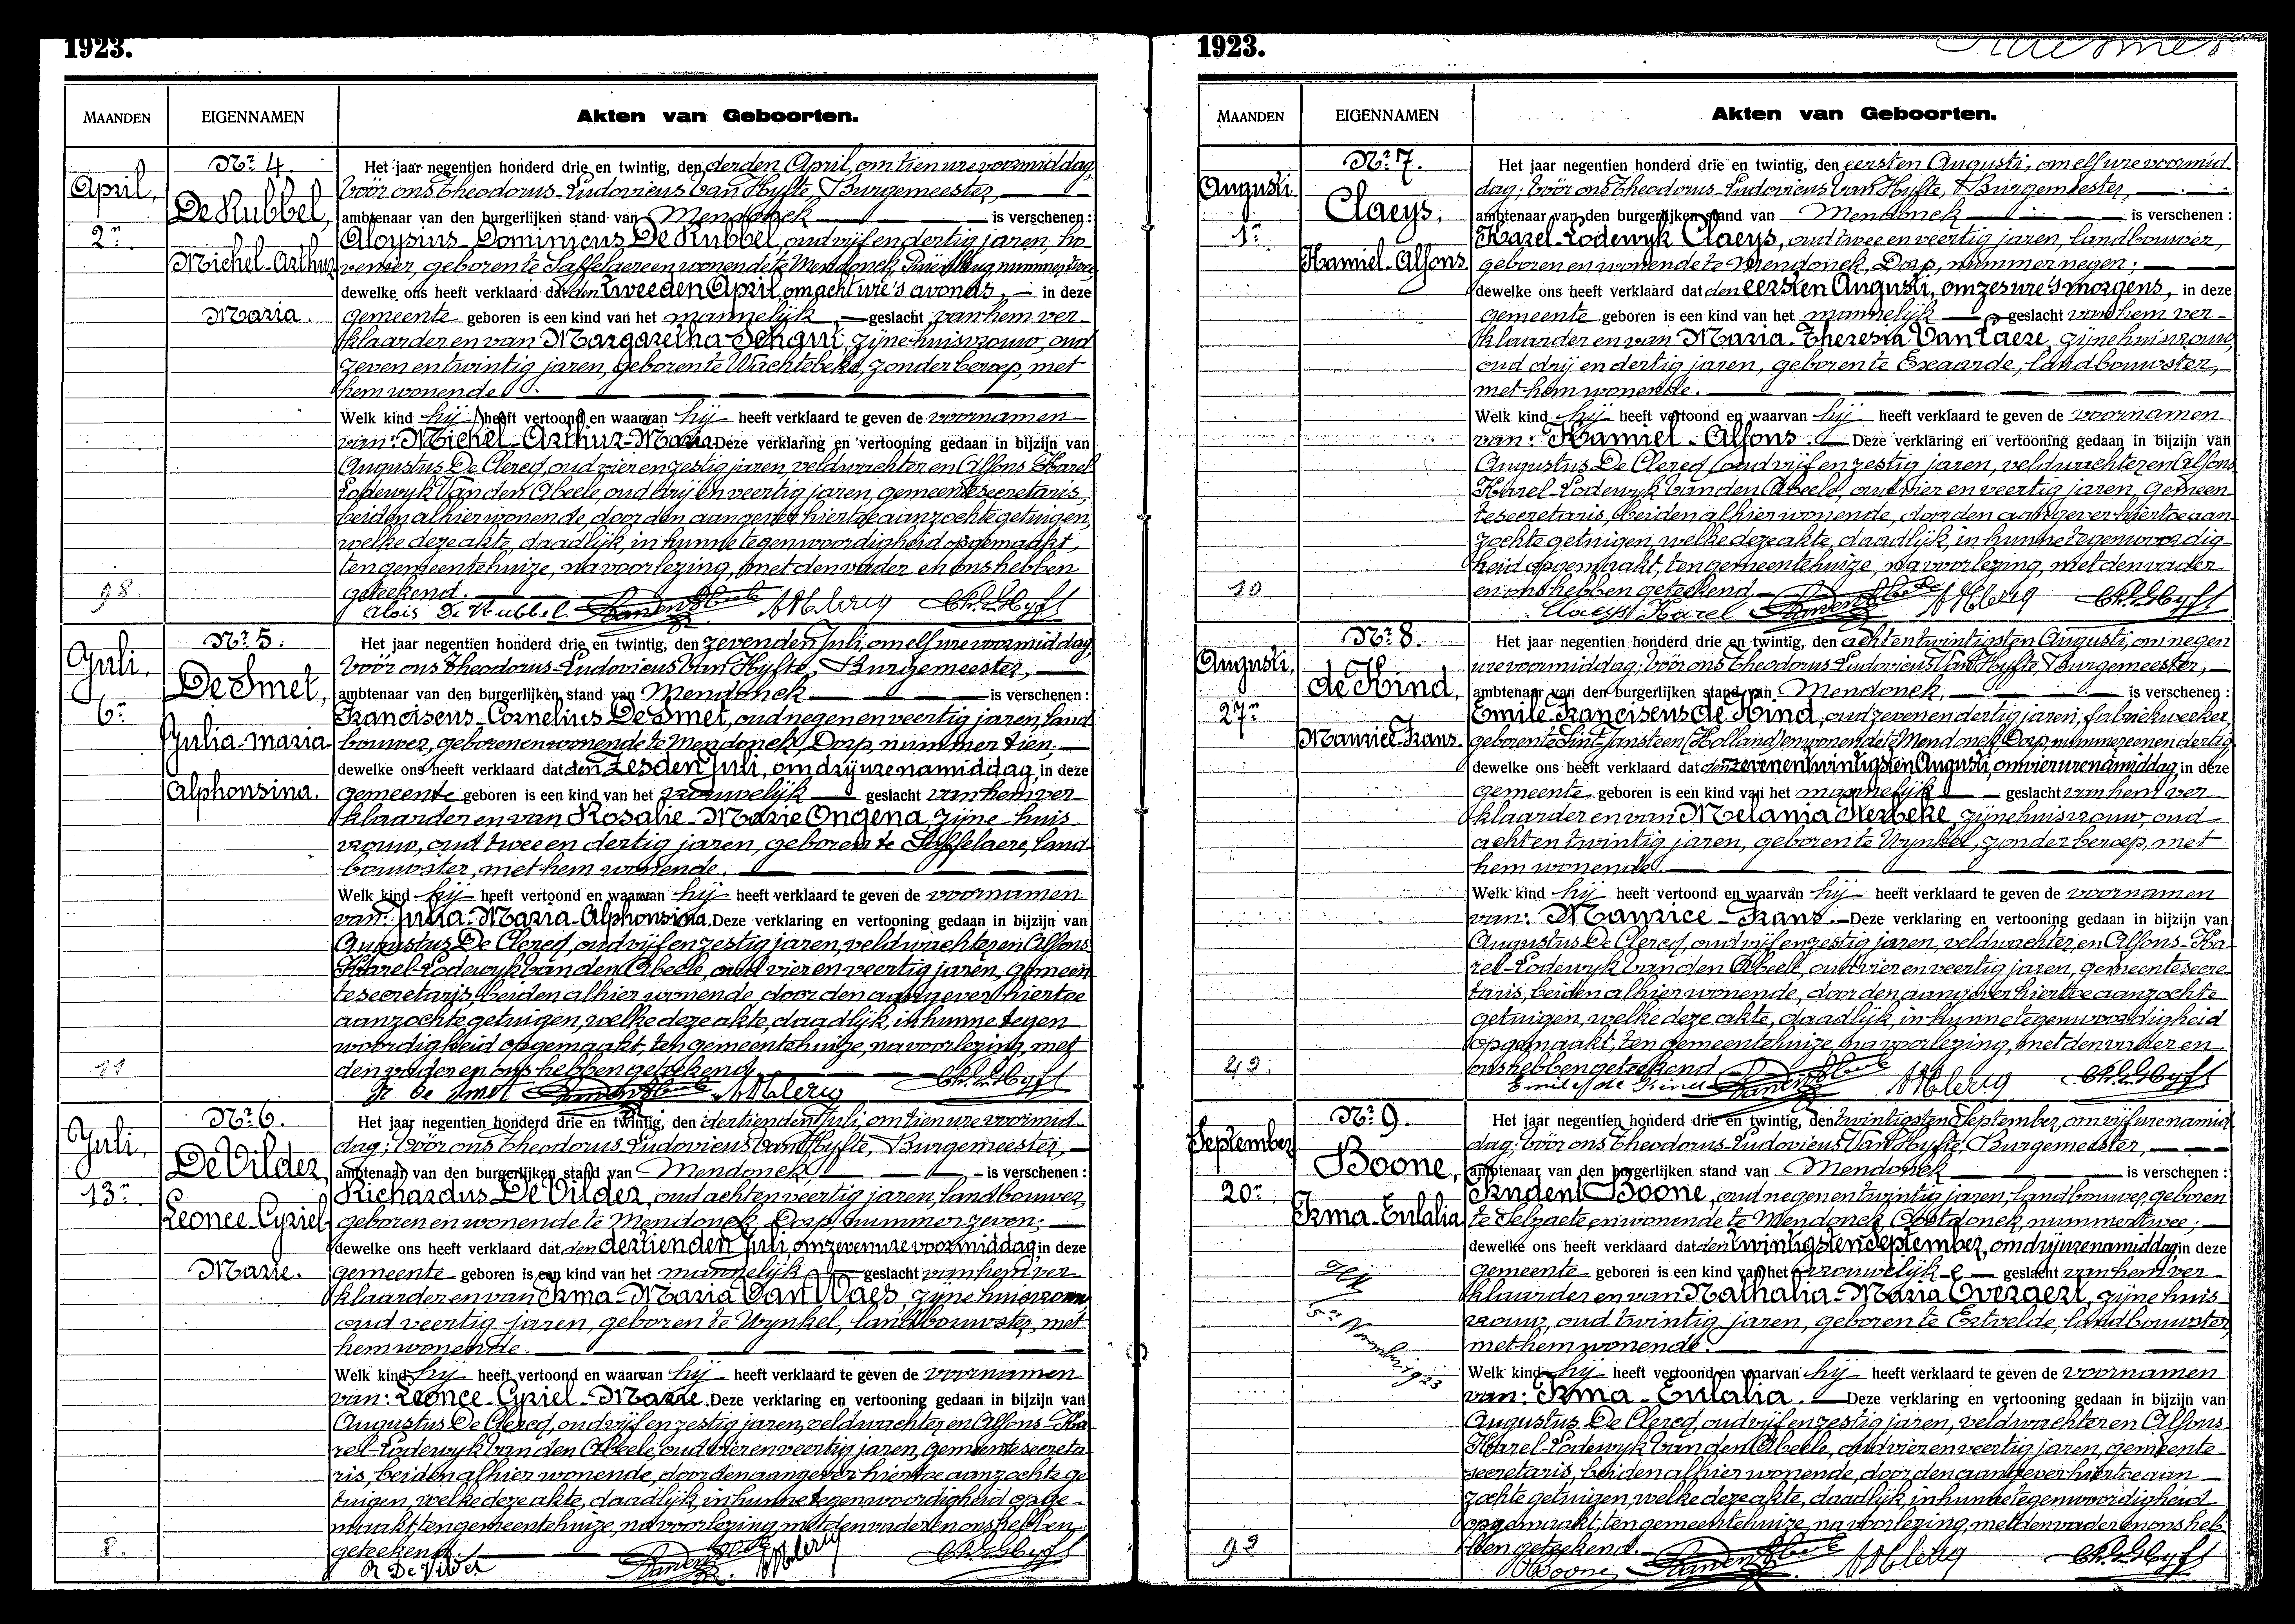 1923.
MAANDEN
EIGENNAMEN
Akten van Geboorten.
April,
2n
98.
Nr 4.
De Kubbel,
Michel-Arthur
Maria.
Het jaar negentien honderd drie en twintig, den derden April, om tien ure voormiddag,
vóór ons Theodorus-Ludovicus Van Hyfte, Burgemeester,
ambtenaar van den burgerlijken stand van Mendonck is verschenen :
Aloysius-Dominicus De Kubbel, oud vijf en dertig jaren, ho-
venier, geboren te Saffelaere en wonende te Mendonck, nummer twee
dewelke ons heeft verklaard dat den tweeden April, om acht ure 's avonds, in deze
gemeente geboren is een kind van het mannelijk geslacht van hem ver-
klaarder en van Margaretha Schaut, zijne huisvrouw, oud
zeven en twintig jaren, geboren te Wachtebeke, zonder beroep, met
hem wonende.
Welk kind hij heeft vertoond en waarvan hij heeft verklaard te geven de voornamen
van: Michel-Arthur-Maria. Deze verklaring en vertooning gedaan in bijzijn van
Augustus De Clercq, oud vier en zestig jaren, veldwachter en Alfons Karel
Lodewyk Van den Abeele, oud drij en veertig jaren, gemeentesecretaris,
beiden alhier wonende, door den aangever hiertoe aanzochte getuigen,
welke deze akte, daadlijk, in hunne tegenwoordigheid opgemaakt,
ten gemeentehuize, na voorlezing, met den vader en ons hebben
geteekend.
Alois De Kubbel
Juli,
6n
Nr 5.
De Smet,
Julia-Maria
Alphonsina.
Het jaar negentien honderd drie en twintig, den zevenden Juli, om elf ure voormiddag
vóór ons Theodorus-Ludovicus Van Hyfte, Burgemeester,
ambtenaar van den burgerlijken stand van Mendonck is verschenen :
Franciscus-Cornelius De Smet, oud negen en veertig jaren, land
bouwer, geboren en wonende te Mendonck, Dorp, nummer tien;
dewelke ons heeft verklaard dat den zesden Juli, om drij ure namiddag, in deze
gemeente geboren is een kind van het vrouwelijk geslacht van hem ver-
klaarder en van Rosalie-Marie Ongena, zijne huis-
vrouw, oud twee en dertig jaren, geboren te Saffelaere, land-
bouwster, met hem wonende.
Welk kind hij heeft vertoond en waarvan hij heeft verklaard te geven de voornamen
van: Julia-Maria-Alphonsina. Deze verklaring en vertooning gedaan in bijzijn van
Augustus De Clercq, oud vijf en zestig jaren, veldwachter en Alfons
Karel-Lodewyk Van den Abeele, oud vier en veertig jaren, gemeen-
tesecretaris, beiden alhier wonende door den aangever hiertoe
aanzochte getuigen, welke deze akte, daadlijk, in hunne tegen
woordigheid opgemaakt, ten gemeentehuize, na voorlezing, met
den vader en ons hebben geteekend.
De Smet
Juli,
13n
8.
Nr 6.
De Vilder,
Leonce-Cyriel-
Marie.
Het jaar negentien honderd drie en twintig, den dertienden Juli, om tien ure voormid-
dag; vóór ons Theodorus-Ludovicus Van Hyfte, Burgemeester,
ambtenaar van den burgerlijken stand van Mendonck is verschenen :
Richardus De Vilder, oud acht en veertig jaren, landbouwer,
geboren en wonende te Mendonck, Dorp, nummer zeven;
dewelke ons heeft verklaard dat den dertienden Juli, om zeven ure voormiddag, in deze
gemeente geboren is een kind van het mannelijk geslacht van hem ver-
klaarder en van Irma-Maria Van Waes, zijne huisvrouw
oud veertig jaren, geboren te Wynkel, landbouwster, met
hem wonende.
Welk kind hij heeft vertoond en waarvan hij heeft verklaard te geven de voornamen
van: Leonce-Cyriel-Marie. Deze verklaring en vertooning gedaan in bijzijn van
Augustus De Clercq, oud vijf en zestig jaren, veldwachter en Alfons-Ka-
rel-Lodewyk Van den Abeele, oud vier en veertig jaren, gemeentesecreta-
ris, beiden alhier wonende, door den aangever hiertoe aanzochte ge-
tuigen, welke deze akte, daadlijk, in hunne tegenwoordigheid opge-
maakt, ten gemeentehuize, na voorlezing, met den vader en ons hebben
geteekend.
R De Vilder
1923.
MAANDEN
EIGENNAMEN
Akten van Geboorten.
Augusti.
1n
10
Nr 7.
Claeys,
Kamiel-Alfons.
Het jaar negentien honderd drie en twintig, den eersten Augusti, om elf ure voormid-
dag; vóór ons Theodorus-Ludovicus Van Hyfte, Burgemeester,
ambtenaar van den burgerlijken stand van Mendonck is verschenen :
Karel-Lodewyk Claeys, oud twee en veertig jaren, landbouwer,
geboren en wonende te Mendonck, Dorp, nummer negen;
dewelke ons heeft verklaard dat den eersten Augusti, om zes ure 's morgens, in deze
gemeente geboren is een kind van het mannelijk geslacht van hem ver-
klaarder en van Maria-Theresia Van Laere, zijne huisvrouw,
oud drij en dertig jaren, geboren te Exaarde, landbouwster,
met hem wonende.
Welk kind hij heeft vertoond en waarvan hij heeft verklaard te geven de voornamen
van: Kamiel-Alfons. Deze verklaring en vertooning gedaan in bijzijn van
Augustus De Clercq, oud vijf en zestig jaren, veldwachter en Alfons
Karel-Lodewyk Van den Abeele, oud vier en veertig jaren, gemeen-
tesecretaris, beiden alhier wonende, door den aangever hiertoe aan-
zochte getuigen, welke deze akte, daadlijk, in hunne tegenwoordig-
heid opgemaakt, ten gemeentehuize, na voorlezing, met den vader
en ons hebben geteekend.
Claeys Karel
Augusti,
27n
Nr 8.
de Kind,
Maurice-Frans.
Het jaar negentien honderd drie en twintig, den acht en twintigsten Augusti, om negen
ure voormiddag; vóór ons Theodorus Ludovicus Van Hyfte, Burgemeester,
ambtenaar van den burgerlijken stand van Mendonck, is verschenen :
Emile-Franciscus de Kind, oud zeven en dertig jaren, fabriekwerker,
geboren te Sint-Jansteen (Holland) en wonende te Mendonck, Dorp, nummer een en dertig
dewelke ons heeft verklaard dat den zeven en twintigsten Augusti, om vier ure namiddag, in deze
gemeente geboren is een kind van het mannelijk geslacht van hem ver-
klaarder en van Melania Kerbeke, zijne huisvrouw, oud
acht en twintig jaren, geboren te Wynkel, zonder beroep, met
hem wonende.
Welk kind hij heeft vertoond en waarvan hij heeft verklaard te geven de voornamen
van: Maurice-Frans. Deze verklaring en vertooning gedaan in bijzijn van
Augustus De Clercq, oud vijf en zestig jaren, veldwachter, en Alfons-Ka-
rel-Lodewyk Van den Abeele, oud vier en veertig jaren, gemeentesecre-
taris, beiden alhier wonende, door den aangever hiertoe aanzochte
getuigen, welke deze akte, daadlijk, in hunne tegenwoordigheid
opgemaakt, ten gemeentehuize, na voorlezing, met den vader en
ons hebben geteekend
September
20n
92
Nr 9.
Boone,
Irma-Eulalia
5n November 1923
Het jaar negentien honderd drie en twintig, den twintigsten September, om vijf ure namid-
dag; vóór ons Theodorus-Ludovicus Van Hyfte, Burgemeester,
ambtenaar van den burgerlijken stand van Mendonck is verschenen :
Prudent Boone, oud negen en twintig jaren, landbouwer, geboren
te Selzaete en wonende te Mendonck, Oostdonck, nummer twee;
dewelke ons heeft verklaard dat den twintigsten September, om drij ure namiddag in deze
gemeente geboren is een kind van het vrouwelijk geslacht van hem ver-
klaarder en van Nathalia-Maria Evergert, zijne huis-
vrouw, oud twintig jaren, geboren te Ertvelde, landbouwster,
met hem wonende.
Welk kind hij heeft vertoond en waarvan hij heeft verklaard te geven de voornamen
van: Irma-Eulalia. Deze verklaring en vertooning gedaan in bijzijn van
Augustus De Clercq, oud vijf en zestig jaren, veldwachter en Alfons
Karel-Lodewyk Van den Abeele, oud vier en veertig jaren, gemeente
secretaris, beiden alhier wonende, door den aangever hiertoe aan-
zochte getuigen, welke deze akte, daadlijk, in hunne tegenwoordigheid
opgemaakt, ten gemeentehuize, na voorlezing, met den vader en ons heb-
ben geteekend.
Boone